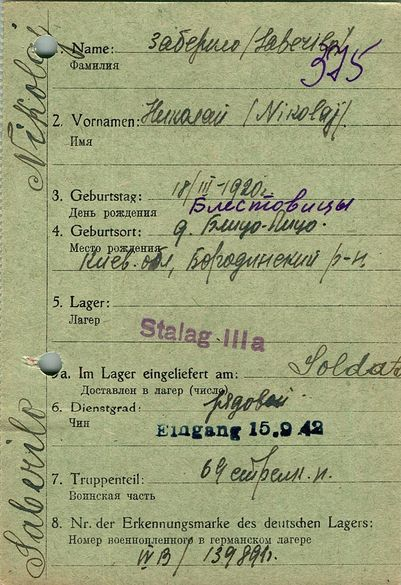 Nikolaj
Saberilo
Name: Заберило /Saberilo/
Фамилия
375
2. Vornamen: Николай /Nikolaj/
Имя
3. Geburtstag: 18/III-1920г.
День рождения Блестовицы
4. Geburtsort: д.
Место рождения
Киев. обл, Бородянский р-н.
5. Lager:
Лагерь
Stalag IIIa
a. Im Lager eingeliefert am: Soldat
Доставлен в лагер (число)
6. Dienstgrad: рядовой
Чин
Eingang 15.9.42
7. Truppenteil: 69 стрелк. п.
Воинская часть
8. Nr. der Erkennungsmarke des deutschen Lagers:
Номер военнопленного в германском лагере
IV B / 139891.